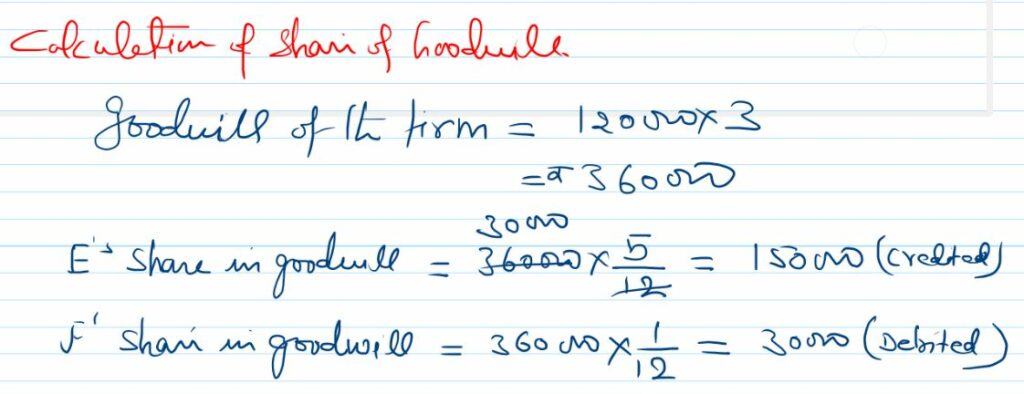 Calculation of Share of Goodwill.
Goodwill of the firm = 12000×3
=₹ 36000
3000
E's Share in goodwill = 36000 × 5/12 = 15000 (Credited)
F' Share in goodwill = 36000 × 1/12 = 3000 (Debited)